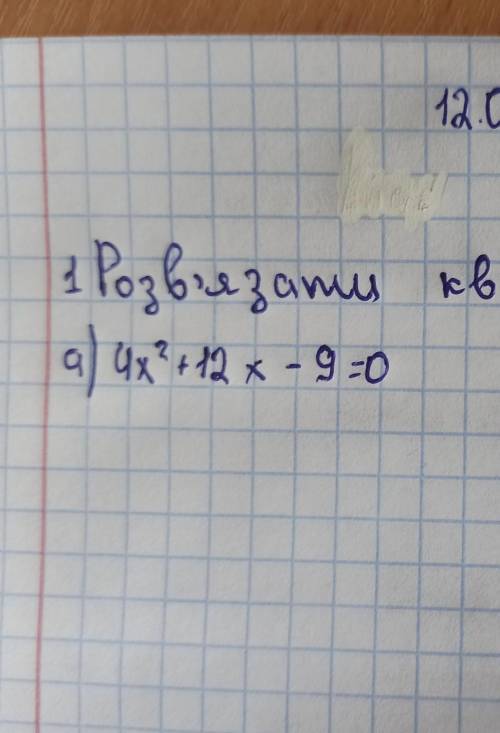 12.
1 Розв'язати кв
а) 4x² + 12x - 9 = 0